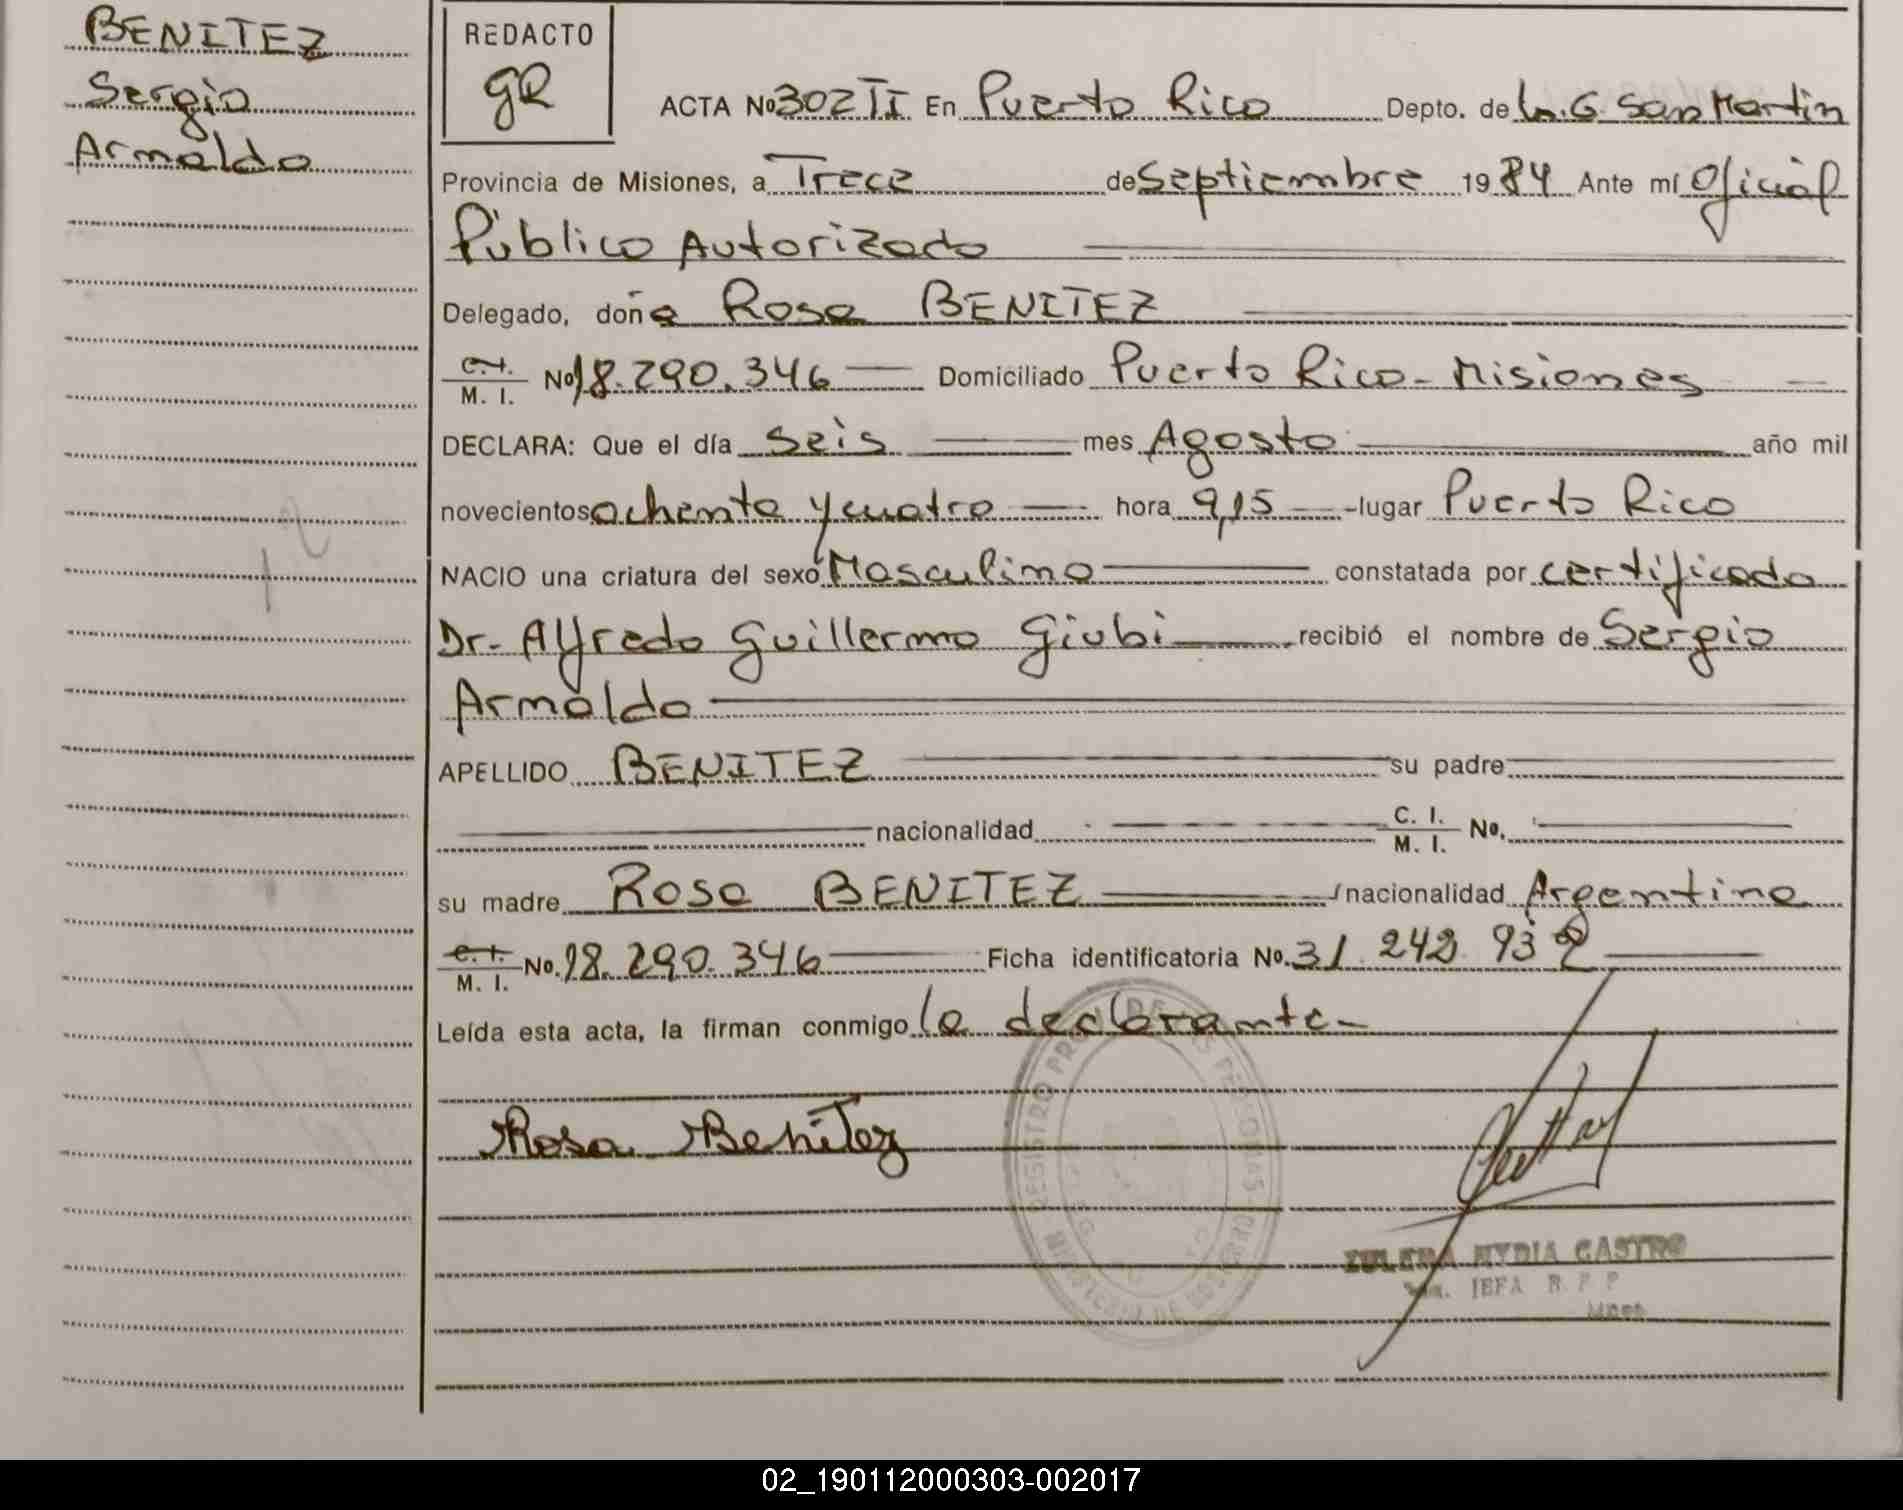 BENITEZ
Sergio
Arnaldo
REDACTO
gR
ACTA Nº 302 TI En Puerto Rico Depto. de L.G. San Martin
Provincia de Misiones, a Trece de Septiembre 1984 Ante mí Oficial
Público Autorizado
Delegado, doña Rosa BENITEZ
C.I. / M. I. Nº 18.290.346 Domiciliado Puerto Rico - Misiones
DECLARA: Que el día seis mes Agosto año mil
novecientos ochenta y cuatro hora 9,15 lugar Puerto Rico
NACIO una criatura del sexo Masculino constatada por certificado
Dr. Alfredo Guillermo Giubi recibió el nombre de Sergio
Arnaldo
APELLIDO BENITEZ su padre
nacionalidad C. I. / M. I. No.
su madre Rosa BENITEZ nacionalidad Argentina
C.I. / M. I. No. 18.290.346 Ficha identificatoria No. 31.242.93
Leída esta acta, la firman conmigo la declarante -
Rosa Benítez
REGISTRO PROV. DE LAS PERSONAS
MINISTERIO DE
MYDIA CASTRO
JEFA R. P. P
02_190112000303-002017